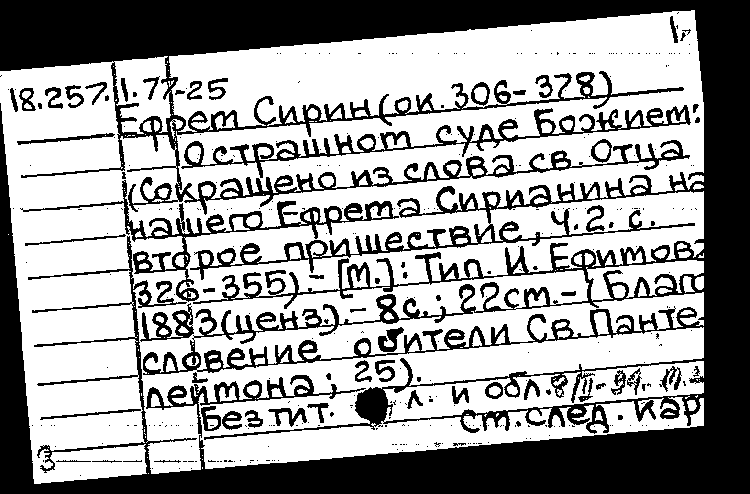 18.257.II.77-25
Ефрем Сирин (ок. 306-378)
О страшном суде Божием:
(Сокращено из слова св. Отца
нашего Ефрема Сирианина на
второе пришествие, ч. 2. с.
326-355).- [М.]: Тип. И. Ефимова
1883 (ценз.).- 8с.; 22см.- (Благо
словение обители Св. Панте-
леймона; 25).
Без тит. л. и обл.
ст. след. кар
3